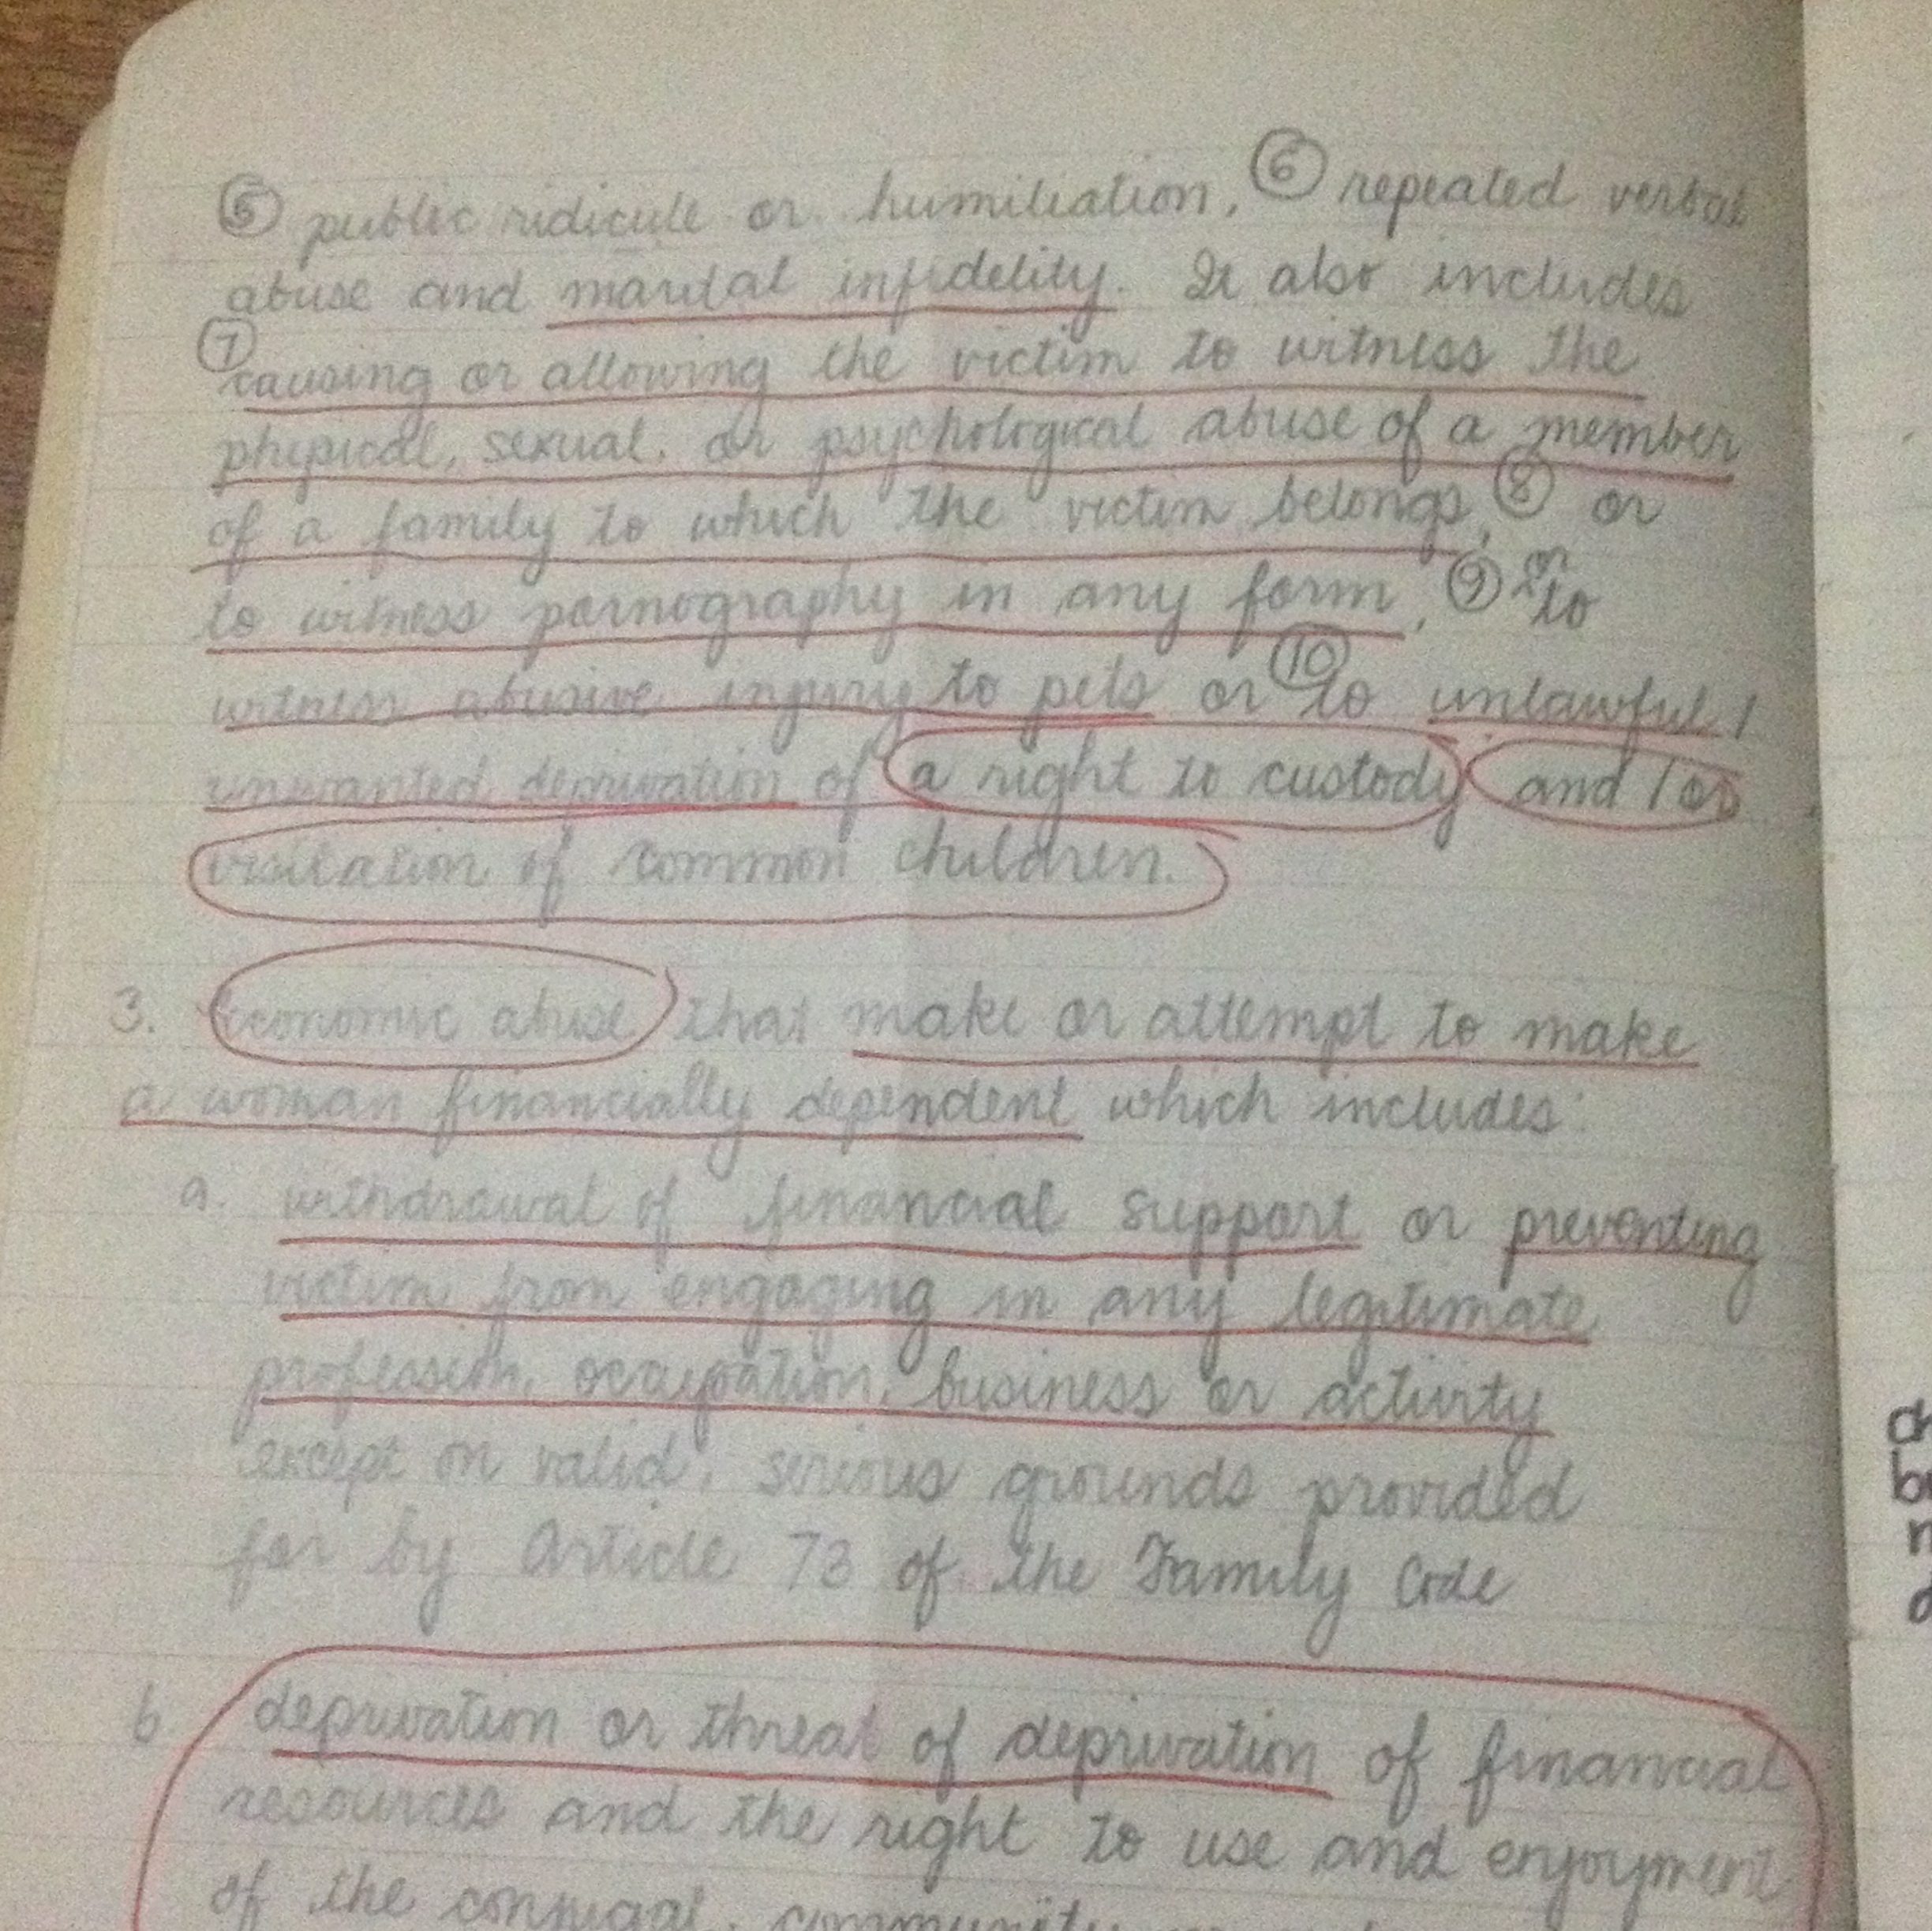 ⑤ public ridicule or humiliation, ⑥ repeated verbal
abuse and marital infidelity. It also includes
⑦ causing or allowing the victim to witness the
physical, sexual, or psychological abuse of a member
of a family to which the victim belongs, ⑧ or
to witness pornography in any form, ⑨ or to
witness abusive injury to pets or ⑩ to unlawful/
unwanted deprivation of a right to custody and/or
visitation of common children.
3. Economic abuse that make or attempt to make
a woman financially dependent which includes:
a. withdrawal of financial support or preventing
victim from engaging in any legitimate
profession, occupation, business or activity
except on valid, serious grounds provided
for by Article 73 of the Family Code
b. deprivation or threat of deprivation of financial
resources and the right to use and enjoyment
of the conjugal, community